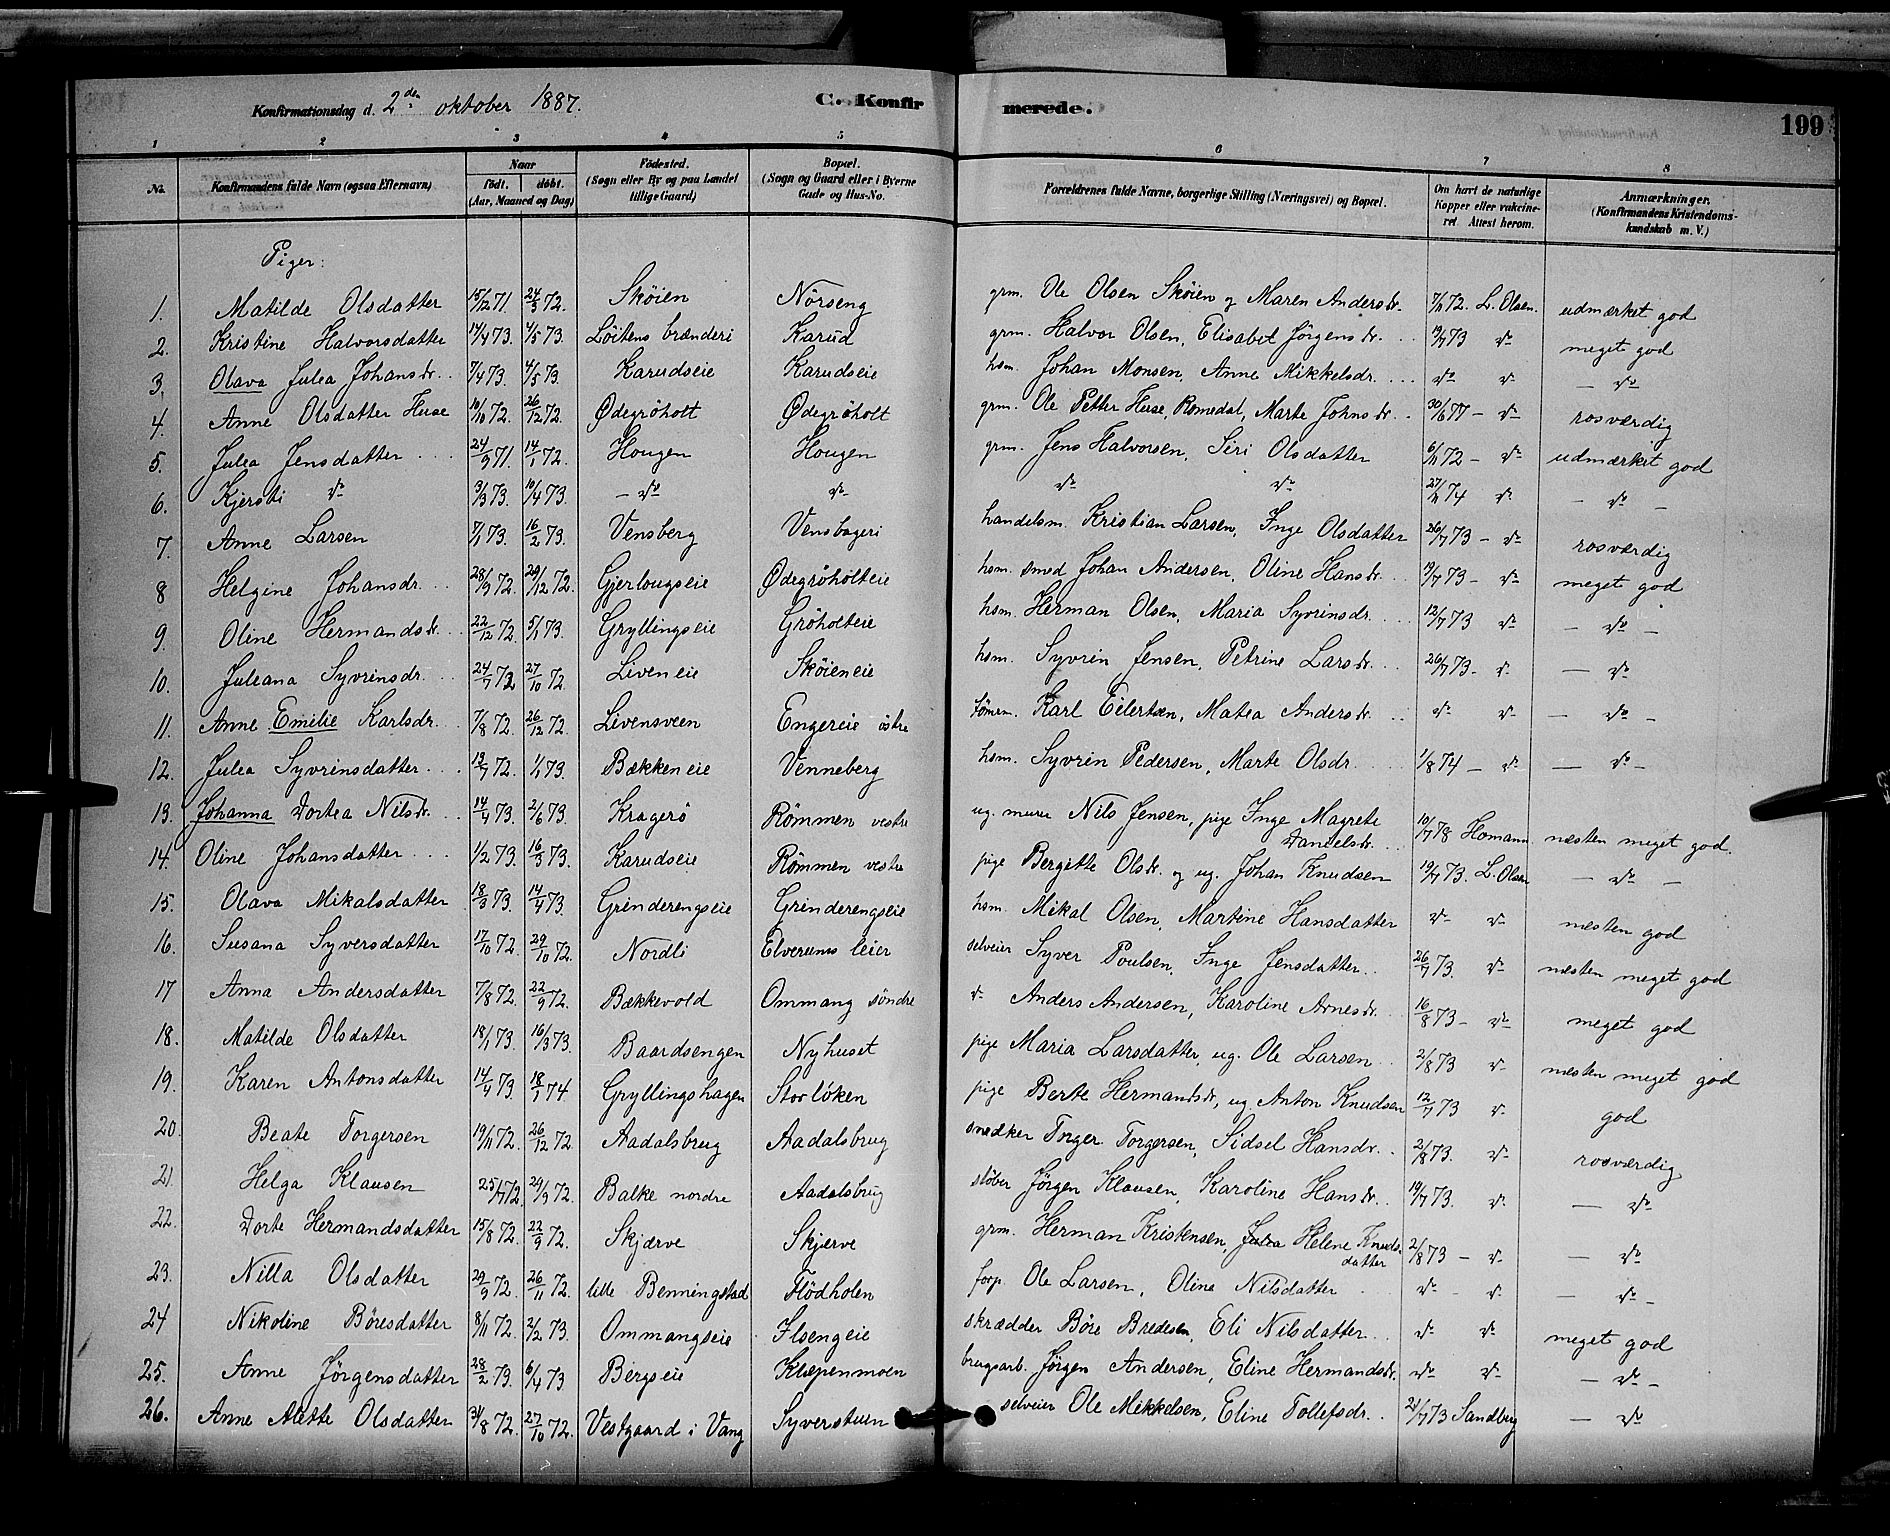 Konfirmationsdag d. 2den oktober 1887. C. Konfirmerede. 199
1 2 3 4 5 6 7 8
No. Konfirmandens fulde Navn (ogsaa Efternavn) Naar födt. döbt. (Aar, Maaned og Dag) Födested. (Sogn eller By og paa Landet tillige Gaard) Bopæl. (Sogn og Gaard eller i Byerne Gade og Hus-No. Forældrenes fulde Navne, borgerlige Stilling (Næringsvei) og Bopæl. Om havt de naturlige Kopper eller vakcineret Attest herom. Anmærkninger. (Konfirmandens Kristendomskundskab m. V.)
Piger:
1. Matilde Olsdatter 15/12 71. 24/3 72. Sköien Nörseng grm. Ole Olsen Sköien og Maren Andersdr. 7/11 72. L. Olsen. udmærket god
2. Kristine Halvorsdatter 14/4 73. 4/5 73. Löitens brænderi Karud grm. Halvor Olsen, Elisabet Jörgensdr. 19/7 73 do meget god
3. Olava Julea Johansdr. 7/4 73. 4/5 73. Karudseie Karudseie hsm. Johan Monsen, Anne Mikkelsdr. do do — do
4. Anne Olsdatter Huse 10/10 72. 26/12 72. Ødegröholt Ødegröholt grm. Ole Petter Huse, Romedal, Marte Johnsdr. 30/6 77 — do rosværdig
5. Julea Jensdatter 24/9 71. 14/1 72. Hougen Hougen grm. Jens Halvorsen, Siri Olsdatter 6/11 72 — do udmærket god
6. Kjersti do 3/3 73. 10/4 73. — do do- do do 27/11 74 do — do —
7. Anne Larsen 7/1 73. 16/2 73. Vensberg Vensbageri handelsm. Kristian Larsen, Inge Olsdatter 26/7 73 — do rosværdig
8 Helgine Johansdr. 28/9 72. 29/12 72. Gjerlougseie Ødegröholteie hsm. smed Johan Andersen, Oline Hansdr. 19/7 73 — do meget god
9. Oline Hermandsdr. 22/12 72. 5/1 73. Gryllingseie Gröholteie hsm. Herman Olsen, Maria Syvrinsdr. 12/7 73 do — do —
10. Juleana Syvrinsdr. 24/7 72 27/10 72. Liveneie Sköieneie hsm. Syvrin Jensen, Petrine Larsdr. 26/7 73 - do — do
11. Anne Emilie Karlsdr. 7/8 72. 26/12 72. Livensveen Engereie östre tömm. Karl Eilertsen, Matea Andersdr. do do — do —
12. Julea Syvrinsdatter 13/7 72. 1/1 73. Bækkeneie Venneberg hsm. Syvrin Pedersen, Marte Olsdr. 1/8 74 — do — do —
13. Johanna Dortea Nilsdr. 14/4 73. 2/6 73. Kragerö Römmen vestre ug. murer Nils Jensen, pige Inge Magrete Danielsdr. 10/7 78 Homann næsten meget god.
14. Oline Johansdatter 1/2 73. 16/3 73. Karudseie Römmen vestre pige Bergitte Olsdr. og ug. Johan Knudsen 19/7 73. L. Olsen — do —
15. Olava Mikalsdatter 18/3 73. 14/4 73. Grinderengseie Grinderengseie hsm. Mikal Olsen, Martine Hansdatter do do næsten god
16. Susana Syversdatter 17/10 72. 29/10 72. Nordli Elverums leier selveier Syver Poulsen, Inge Jensdatter 26/7 73. do næsten meget god
17 Anna Andersdatter 7/8 72. 22/9 72. Bækkevold Ommang söndre do Anders Andersen, Karoline Arnesdr. 16/8 73 — do meget god
18. Matilde Olsdatter 18/1 73. 16/3 73. Baardsengen Nyhuset pige Maria Larsdatter, ug. Ole Larsen 2/8 73 do næsten meget god
19. Karen Antonsdatter 14/4 73. 18/1 74 Gryllingshagen Storlöken pige Berte Hermandsdr, ug. Anton Knudsen 12/7 73 do god
20. Beate Torgersen 19/11 72. 26/12 72. Aadalsbrug Aadalsbrug snedker Torger Torgersen, Sidsel Hansdr. 2/8 73. do rosværdig
21. Helga Klausen 25/7 72. 29/9 72. Balke nordre Aadalsbrug stöber Jörgen Klausen, Karoline Hansdr. 19/7 73. do — do
22. Dorte Hermandsdatter 15/8 72. 22/9 72. Skjærve Skjærve grm. Herman Kristensen, Julea Helene Knudsdatter 2/8 73 — do — do
23. Nilla Olsdatter 29/9 72. 26/11 72. lille Benningstad Flödholen forp. Ole Larsen, Oline Nilsdatter do - do — do —
24 Nikoline Böresdatter 8/11 72. 2/2 73. Ommangseie Ilsengeie skrædder Böre Bredesen, Eli Nilsdatter do do meget god
25. Anne Jörgensdatter 28/2 73. 6/4 73. Bergseie Kleppenmoen brugsarb. Jörgen Andersen, Eline Hermandsdr. do do — do —
26. Anne Alette Olsdatter 31/8 72. 27/10 72. Vestgaard i Vang Syverstuen selveier Ole Mikkelsen, Eline Tollefsdr. 21/7 73 Sandberg — do